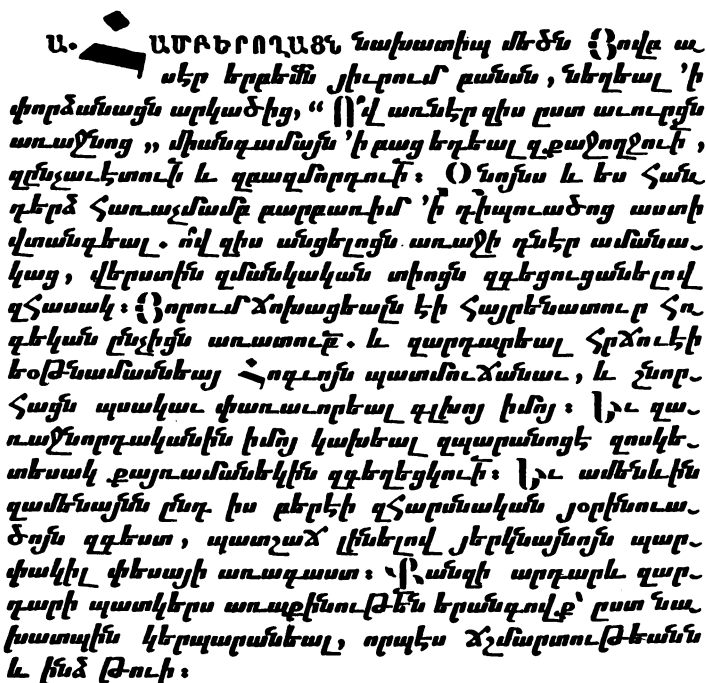 Ա. ՀԱՄԲԵՐՈՂԱՑՆ նախատիպ մեծն Յովբ ա֊
սէր երբեմն յիւրում բանսն, նեղեալ 'ի
փորձանացն արկածից, “ Ո՞վ առնէր զիս ըստ աւուրցն
առաջնոց „ միանգամայն 'ի բաց եդեալ զքաջողջուի̅,
զընչաւէտուի̅ և զբազմորդուի̅։ Զնոյնս և ես հան֊
դերձ հառաչմամբ բարբառիմ 'ի դիպուածոց աստի
վտանգեալ. ո՞վ զիս անցելոցն առաջի դնէր ամանա֊
կաց, վերստին զմանկական տիոցն զգեցուցանելով
զհասակ։ Յորում ճոխացեալն էի հայրենատուր հո֊
գեկան ընչիցն առատուբ̅. և զարդարեալ հրճուէի
եօթնամասնեայ Հոգւոյն պատմուճանաւ, և շնոր֊
հացն պսակաւ փառաւորեալ գլխոյ իմոյ։ Եւ զա֊
ռաջնորդականին իմոյ կախեալ զպարանոցէ զոսկե֊
տեսակ քայռամանեկին զգեղեցկուի̅։ Եւ ամենևին
զամենայնն ընդ իս բերէի զհարսնական յօրինուա֊
ծոյն զգեստ, պատշաճ լինելով յերկնայնոյն պար֊
փակիլ փեսայի առագաստ։ Քանզի արդարև զար֊
դարի պատկերս առաքինութեն̅ երանգովք՝ ըստ նա֊
խատպին կերպարանեալ, որպէս ճշմարտութեանն
և ինձ թուի։